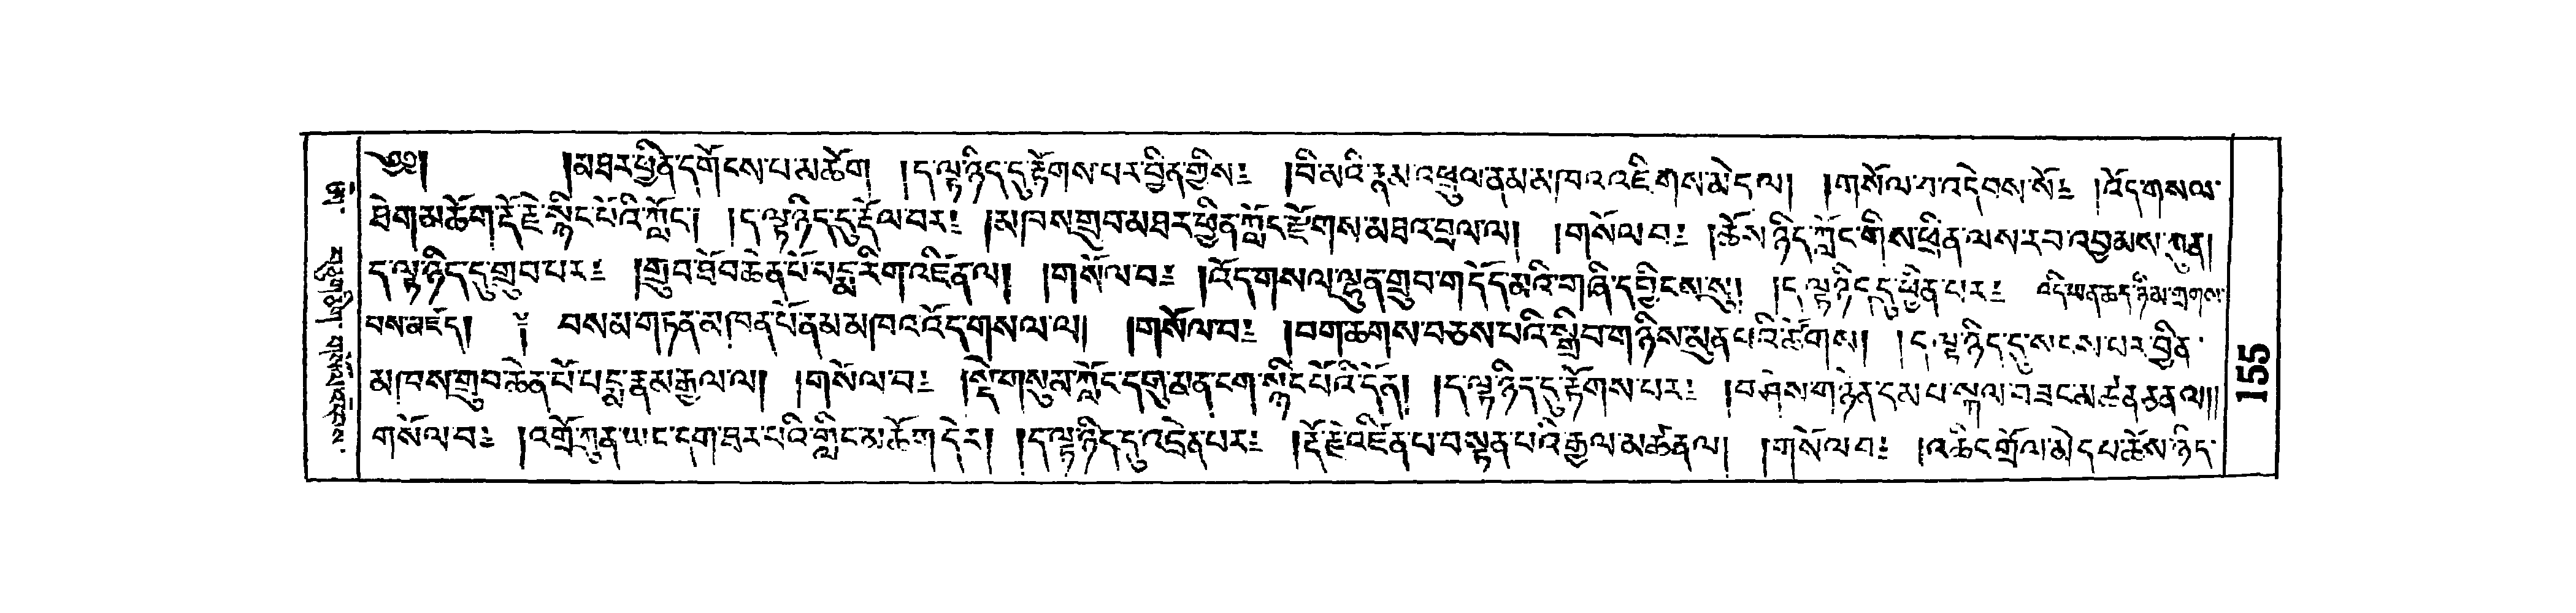 ༄༅། །མཐར་ཕྱིན་དགོངས་པ་མཆོག །ད་ལྟ་ཉིད་དུ་རྟོགས་པར་བྱིན་གྱིས༔ །བི་མའི་རྣམ་འཕྲུལ་ནམ་མཁའ་འཇིགས་མེད་ལ། །གསོལ་བ་འདེབས་སོ༔ །འོད་གསལ་
ཐེག་མཆོག་རྡོ་རྗེ་སྙིང་པོའི་ཀློང་། །ད་ལྟ་ཉིད་དུ་རྡོལ་བར༔ །མཁས་གྲུབ་མཐར་ཕྱིན་ཀློང་རྫོགས་མཐའ་བྲལ་ལ། །གསོལ་བ༔ །ཆོས་ཉིད་ཀློང་གིས་ཕྲིན་ལས་རབ་འབྱམས་ཀུན།
ད་ལྟ་ཉིད་དུ་གྲུབ་པར༔ །གྲུབ་ཐོབ་ཆེན་པོ་པདྨ་རིག་འཛིན་ལ། །གསོལ་བ༔ །འོད་གསལ་ལྷུན་གྲུབ་གདོད་མའི་གཞི་དབྱིངས་སུ། །ད་ལྟ་ཉིད་དུ་ཕྱིན་པར༔ འདི་ཡན་ཆད་ཉི་མ་གྲགས་
པས་མཛད། བསམ་གཏན་མཁན་པོ་ནམ་མཁའ་འོད་གསལ་ལ། །གསོལ་བ༔ །བག་ཆགས་བཅས་པའི་སྒྲིབ་གཉིས་མུན་པའི་ཚོགས། །ད་ལྟ་ཉིད་དུ་སངས་པར་བྱིན་
མཁས་གྲུབ་ཆེན་པོ་པདྨ་རྣམ་རྒྱལ་ལ། །གསོལ་བ༔ །སྡེ་གསུམ་ཀློང་དགུ་མན་ངག་སྙིང་པོའི་དོན། །ད་ལྟ་ཉིད་དུ་རྟོགས་པར༔ །བཤེས་གཉེན་དམ་པ་སྐལ་བཟང་མཚན་ཅན་ལ།།
གསོལ་བ༔ །འགྲོ་ཀུན་ཡང་དག་ཐར་པའི་གླིང་མཆོག་དེར། །ད་ལྟ་ཉིད་དུ་འདྲེན་པར༔ །རྡོ་རྗེ་འཛིན་པ་བསྟན་པའི་རྒྱལ་མཚན་ལ། །གསོལ་བ༔ །འཆིང་གྲོལ་མེད་པ་ཆོས་ཉིད་
155